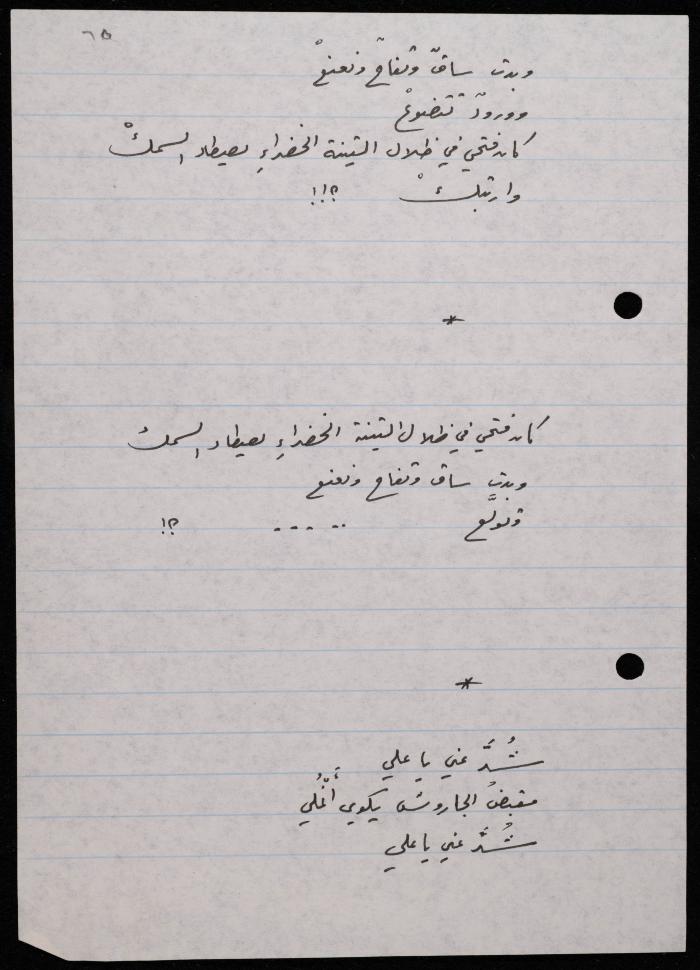 ٦٥
وبدت ساقٌ وتفاحٌ ونعنعْ
وورودٌ تتضوعْ
كان فتحي في ظلال التينة الخضراءِ يصطاد السمكْ
وارتبكْ ؟!!
*
كان فتحي في ظلال التينة الخضراءِ يصطاد السمك
وبدت ساق وتفاح ونعنع
وتولَّع ..... ؟!
*
شُدَّ عني يا علي
مقبضُ الجاروش يكوي أَنْمُلي
شُدَّ عني يا علي